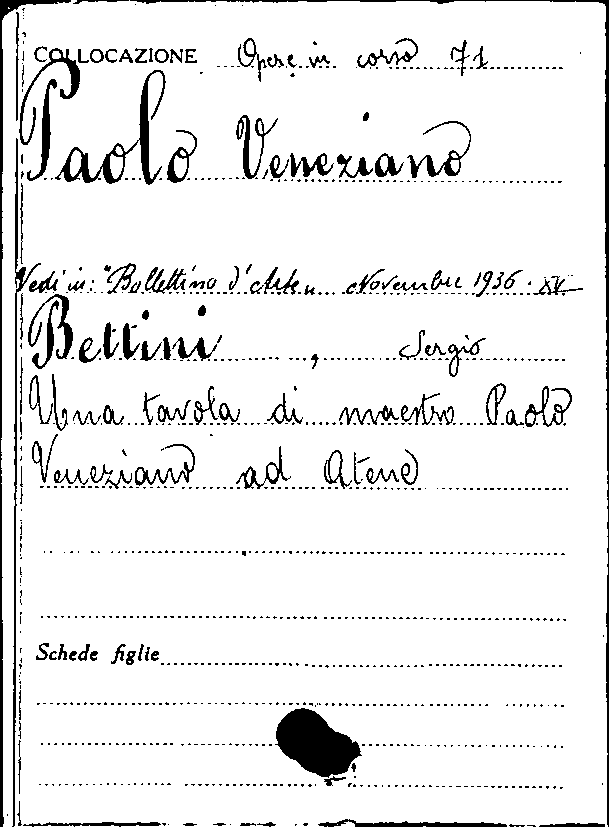 COLLOCAZIONE Opere in corso 71
Paolo Veneziano
Vedi in: "Bollettino d'Arte„ Novembre 1936 · XV
Bettini, Sergio
Una tavola di maestro Paolo
Veneziano ad Atene
Schede figlie